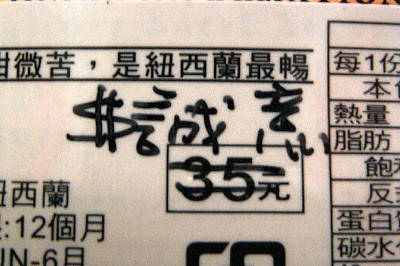 甜微苦，是紐西蘭最暢
$誠意
35元
紐西蘭
:12個月
UN-6月
每1份
本包
熱量
脂肪
飽和
反式
蛋白質
碳水化